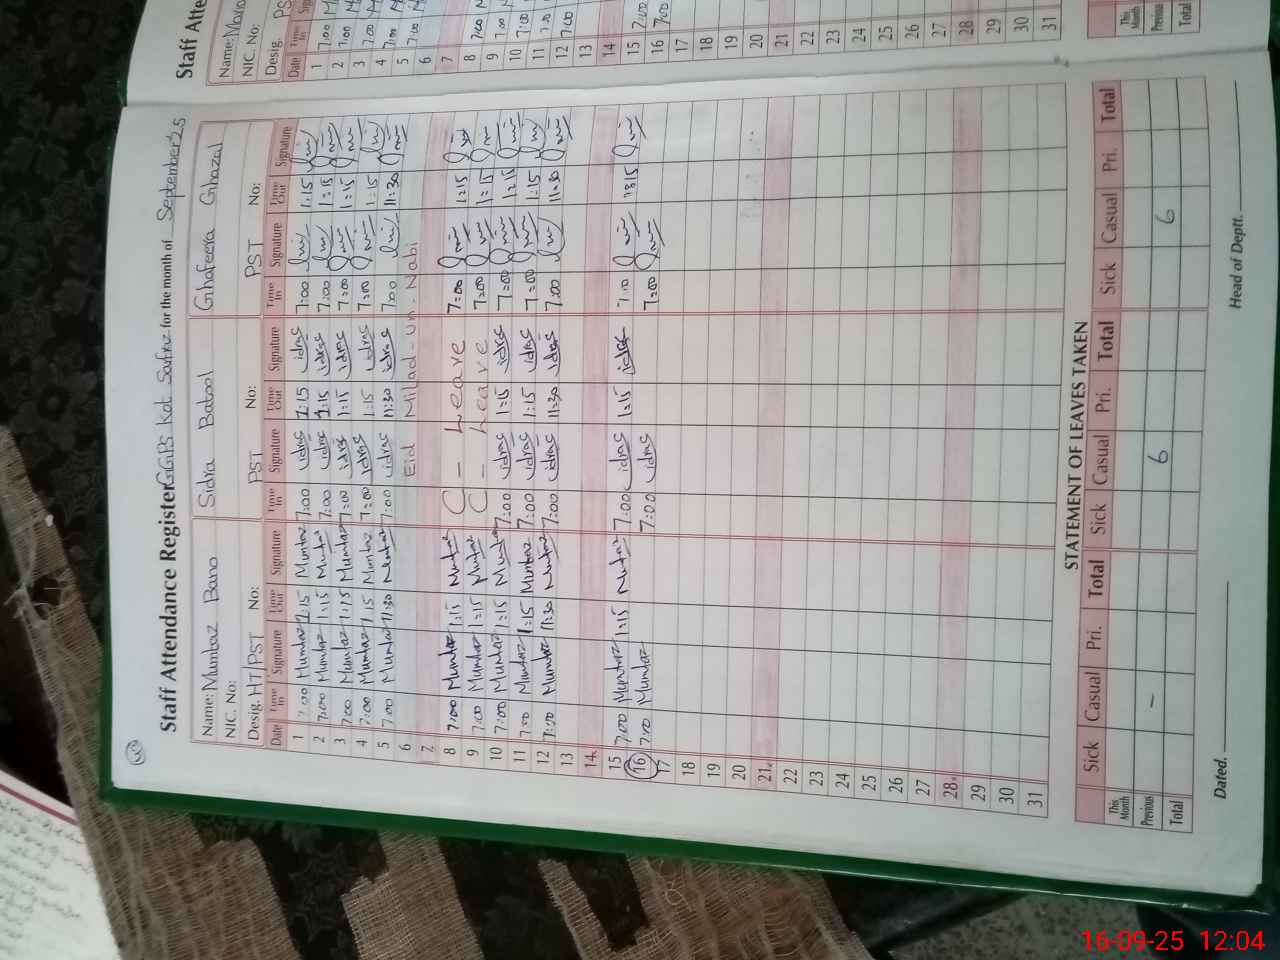 Staff Attendance Register GGPS Kot Safraz for the month of September 25
Name: Mumtaz Bano Sidra Batool Ghafeera Ghazal
NIC. No:
Desig. HT/PST No: PST No: PST No:
Date Time In Signature Time Out Signature Time In Signature Time Out Signature Time In Signature Time Out Signature
1 7:00 Mumtaz 1:15 Mumtaz 7:00 idrac 1:15 idrac 7:00 1:15
2 7:00 Mumtaz 1:15 Mumtaz 7:00 idrac 1:15 idrac 7:00 1:15
3 7:00 Mumtaz 1:15 Mumtaz 7:00 idrac 1:15 idrac 7:00 1:15
4 7:00 Mumtaz 1:15 Mumtaz 7:00 idrac 1:15 idrac 7:00 1:15
5 7:00 Mumtaz 11:30 Mumtaz 7:00 idrac 11:30 idrac 7:00 11:30
6 Eid Milad-un-Nabi
7
8 7:00 Mumtaz 1:15 Mumtaz C - Leave 7:00 1:15
9 7:00 Mumtaz 1:15 Mumtaz C - Leave 7:00 1:15
10 7:00 Mumtaz 1:15 Mumtaz 7:00 idrac 1:15 idrac 7:00 1:15
11 7:00 Mumtaz 1:15 Mumtaz 7:00 idrac 1:15 idrac 7:00 1:15
12 7:00 Mumtaz 11:30 Mumtaz 7:00 idrac 11:30 idrac 7:00 11:30
13
14
15 7:00 Mumtaz 1:15 Mumtaz 7:00 idrac 1:15 idrac 7:00 1:15
16 7:00 Mumtaz 7:00 idrac 7:00
17
18
19
20
21
22
23
24
25
26
27
28
29
30
31
STATEMENT OF LEAVES TAKEN
Sick Casual Pri. Total Sick Casual Pri. Total Sick Casual Pri. Total
This Month
Previous - 6 6
Total
Dated. Head of Deptt.
Staff Atte
Name:
NIC. No:
Desig. PS
Date Time In
1 7:00
2 7:00
3 7:00
4 7:00
5 7:00
6
7
8 7:00
9 7:00
10 7:00
11 7:00
12 7:00
13
14
15 7:00
16 7:00
17
18
19
20
21
22
23
24
25
26
27
28
29
30
31
This Month
Previous
Total
16-09-25 12:04